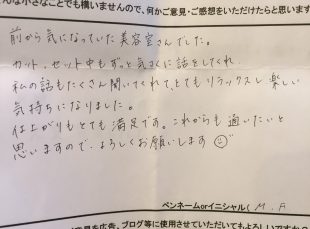 んな小さなことでも構いませんので、何かご意見・ご感想をいただけたらと思います
前から気になっていた美容室さんでした。
カット、セット中もずっと気さくに話をしてくれ
私の話もたくさん聞いてくれて、とてもリラックスし楽しい
気持ちになりました。
仕上がりもとても満足です。これからも通いたいと
思いますので、よろしくお願いします
ペンネームorイニシャル( M. A
を広告、ブログ等に使用させていただいてもよろしいですか